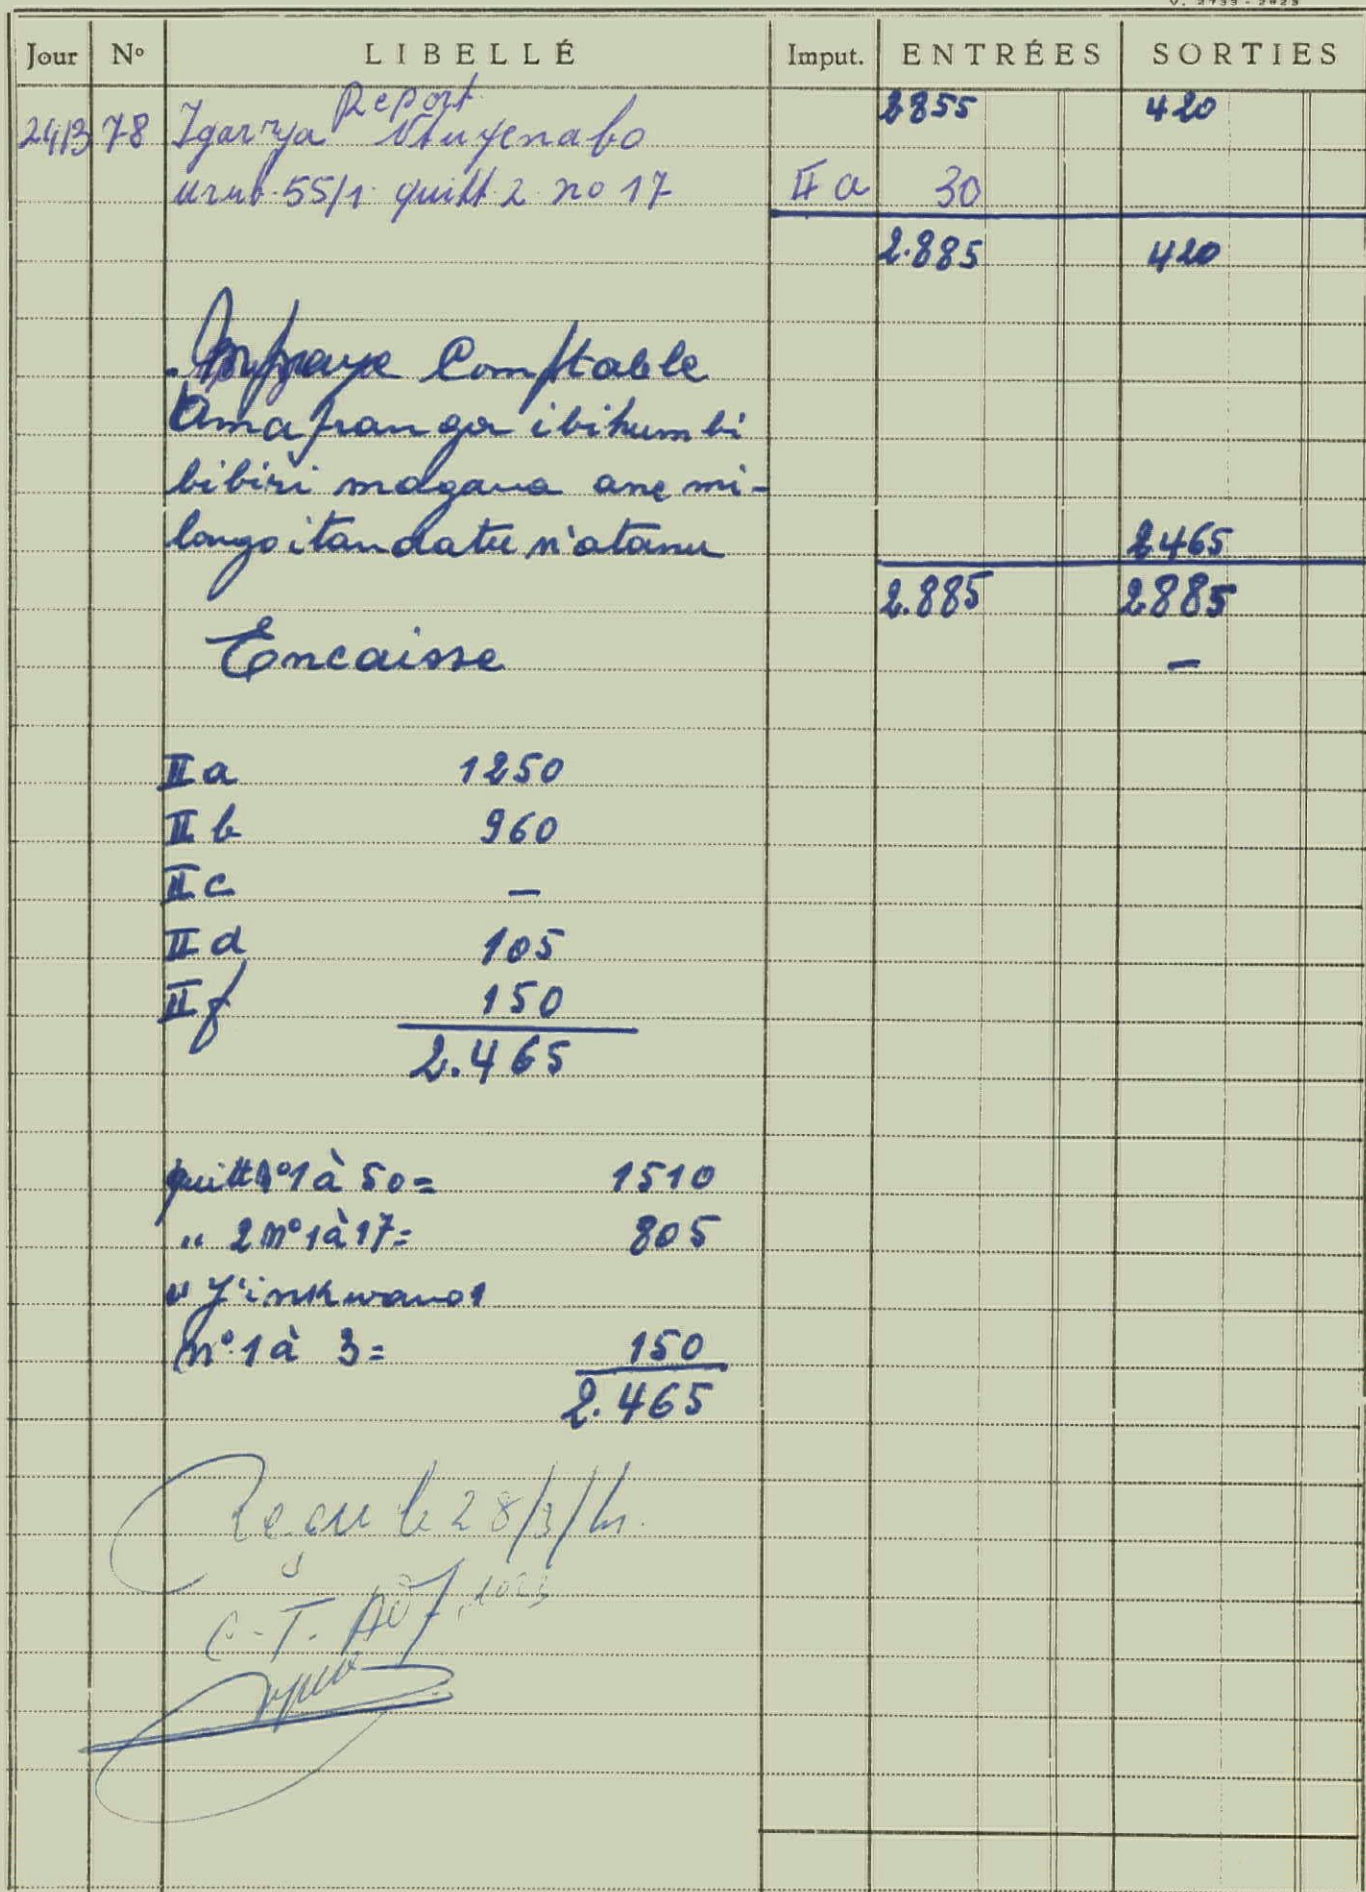 Jour N° LIBELLÉ Imput. ENTRÉES SORTIES
Report 2855 420
24/3 78 Igarya Ntuyenabo
urub. 55/1 quitt 2 no 17 II a 30
2.885 420
Comptable
Amafranga ibihumbi
bibiri magana ane mi-
longo itandatu n'atanu 2465
2.885 2885
Encaisse —
II a 1250
II b 960
II c —
II d 105
II f 150
2.465
quitt 1 n° 1 à 50 = 1510
" 2 n° 1 à 17 = 805
" y'inkwano 1
n° 1 à 3 = 150
2.465
Reçu le 28/3/
C.T.